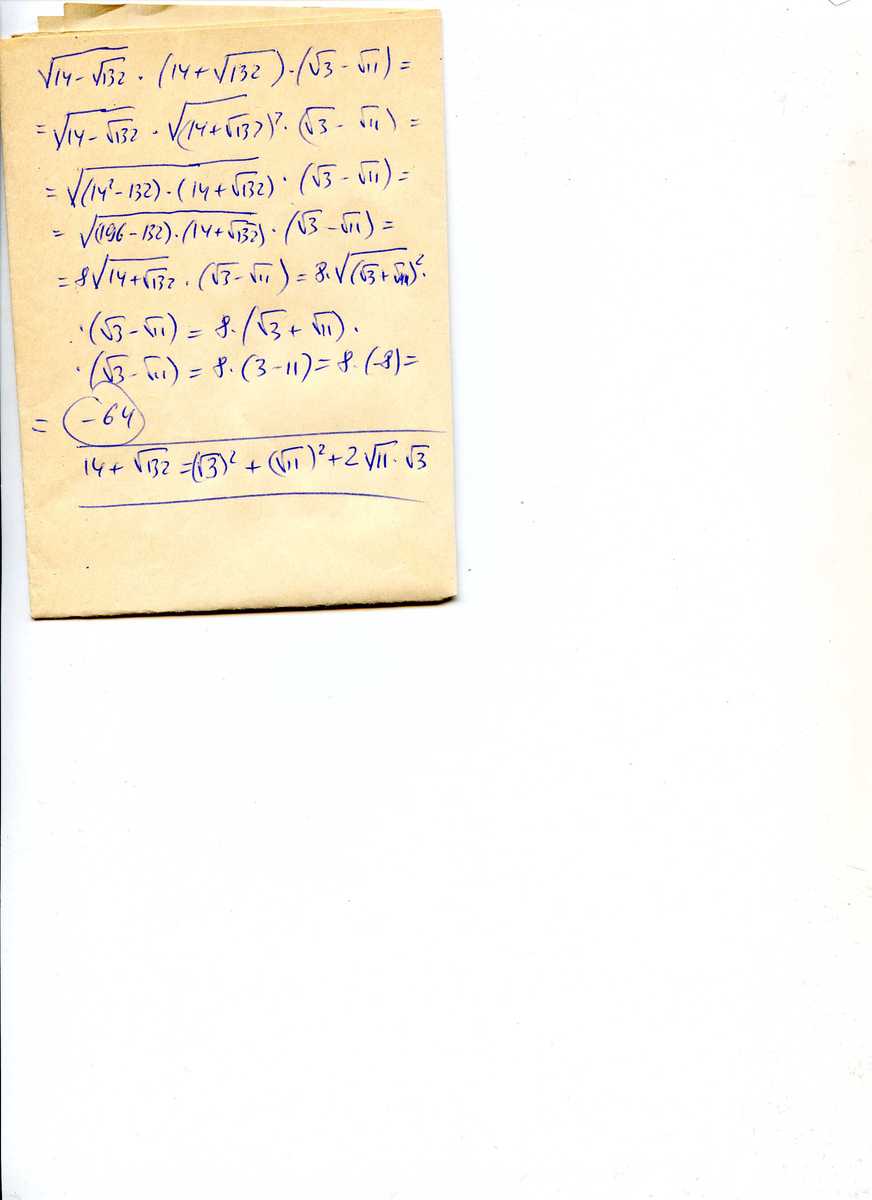 √(14-√132) · (14+√132) · (√3-√11) =
= √(14-√132) · √((14+√132)²) · (√3-√11) =
= √((14²-132)·(14+√132)) · (√3-√11) =
= √((196-132)·(14+√132)) · (√3-√11) =
= 8√(14+√132) · (√3-√11) = 8·√((√3+√11)²) ·
· (√3-√11) = 8·(√3+√11) ·
· (√3-√11) = 8·(3-11) = 8·(-8) =
= -64
14+√132 = (√3)²+(√11)²+2√11·√3